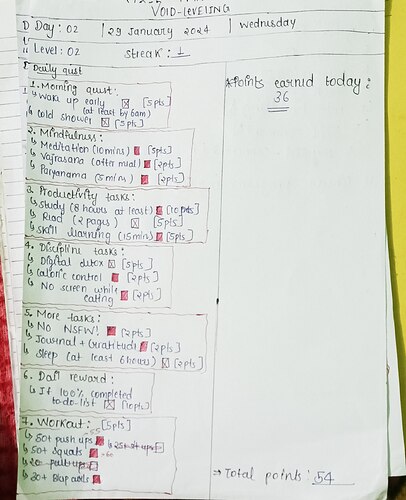 VOID-LEVELING
Day: 02 | 29 January 2024 | Wednesday
Level: 02 streak: 1
Daily quist
1. Morning quist:
↳ Waku up early ☒ [5pts]
(at least by 6am)
↳ Cold shower ☒ [5pts]
2. Mindfulness:
↳ Meditation (10mins) [5pts]
↳ Vajrasana (after mial) [2pts]
↳ Paryanama (5 mins) [2pts]
3. Productivity tasks:
↳ Study (8 hours at least) [10pts]
↳ Read (2 pages) ☒ [5pts]
↳ Skill learning (15mins) [5pts]
4. Discipline tasks:
↳ Digital detox ☒ [5pts]
↳ Caloric control [2pts]
↳ No screen while
eating [2pts]
5. More tasks:
↳ No NSFW! [2pts]
↳ Journal + Gratitude [2pts]
↳ Sleep (at least 6 hours) ☒ [2pts]
6. Dail reward:
↳ If 100% completed
to-do-list ☒ [10pts]
7. Workout: [5pts]
↳ 50+ push ups
↳ 50+ Squats
↳ 20+ pull ups
↳ 20+
*Points earned today:
36
→ Total points: 54